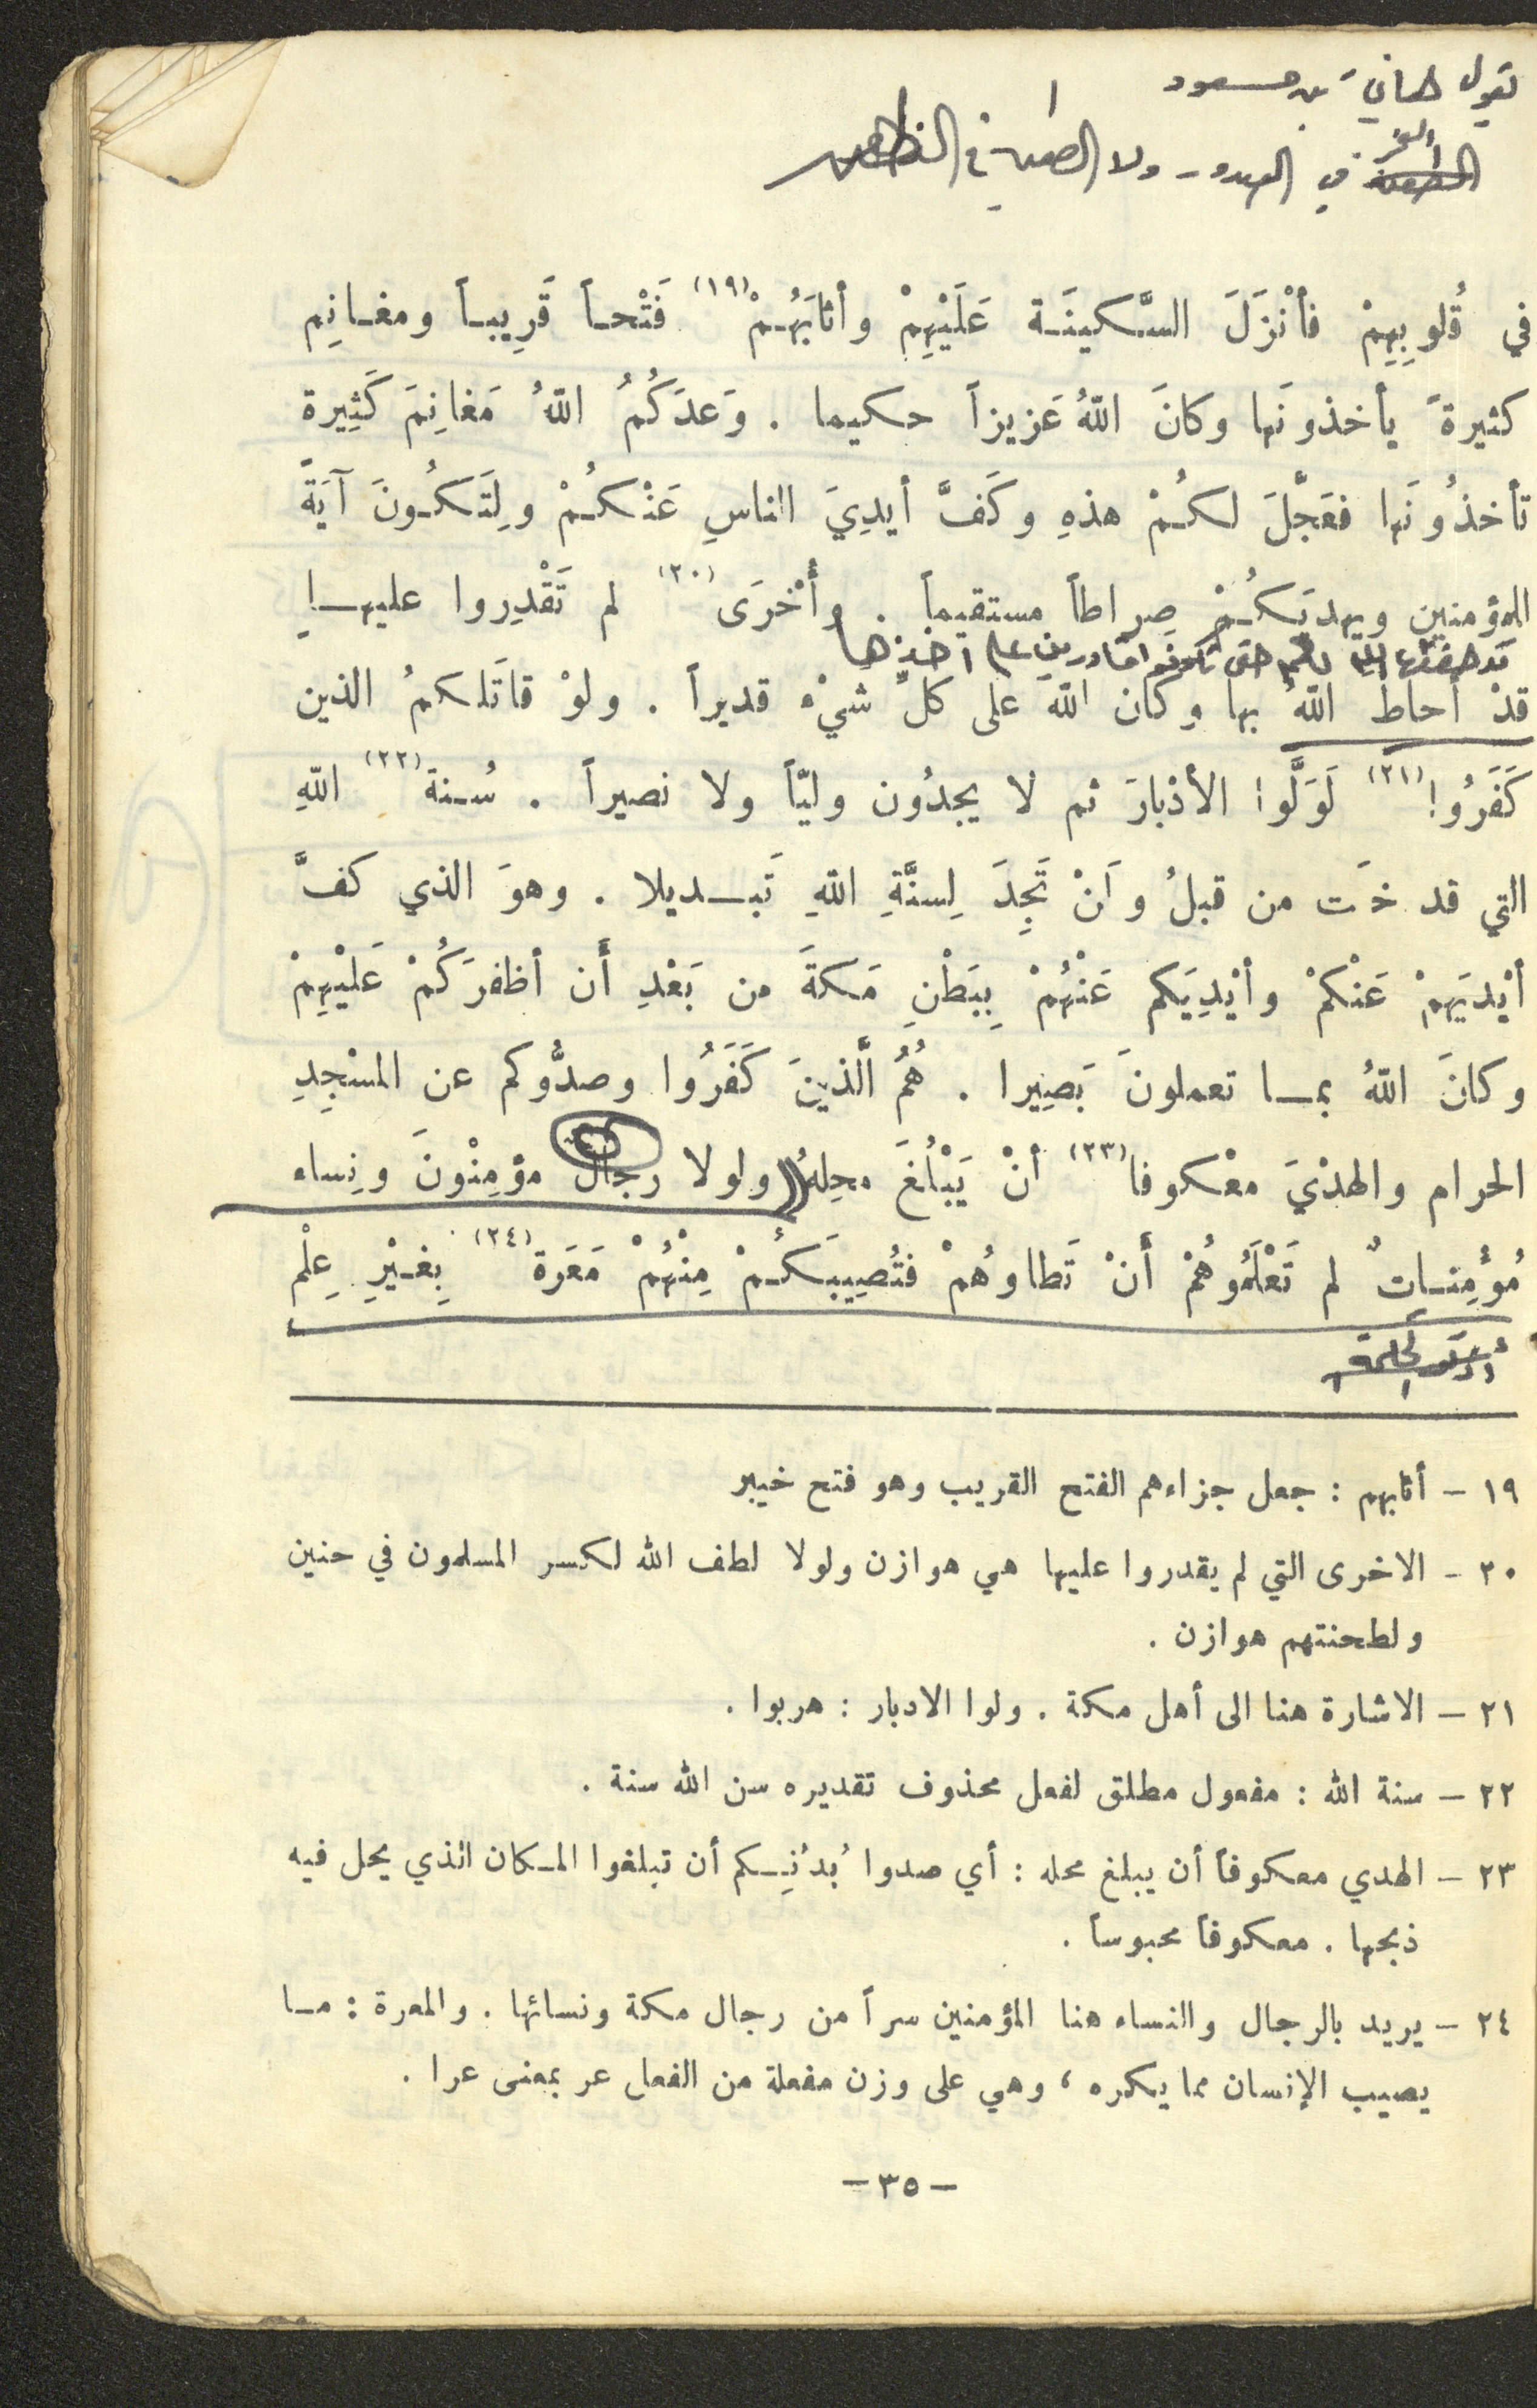 تقول هانئ بن مسعود
في الصدور ولا الطعن في الظهر
في قُلوبِهِمْ فأنْزَلَ السَّكينَة عَلَيْهِمْ وأثابَهُمْ (١٩) فَتْحاً قَرِيباً ومغانِم
كثيرةً يأخذونَها وكانَ اللهُ عَزيزاً حكيما . وَعدَكُمُ اللهُ مَغانِمَ كَثِيرة
تأخذُونَها فعَجَّلَ لكُمْ هذهِ وكَفَّ أيدِيَ الناسِ عَنْكُمْ ولِتَكُونَ آيَةً
للمؤمنين ويهديَكُمْ صِراطاً مستقيماً . وأُخْرَى (٢٠) لم تَقْدِروا عليها
قد حفظها الله لكم حتى تكونوا قادرين على أخذها
قدْ أحاط اللهُ بها وكان اللهُ على كلِّ شيْء قديراً . ولوْ قاتَلكمُ الذين
كَفَرُوا (٢١) لَوَلَّوا الأدْبارَ ثم لا يجدُون وليّاً ولا نصيراً . سُنةَ (٢٢) اللهِ
التي قد خَت من قبلُ وَانْ تَجِدَ لِسنَّةِ اللهِ تَبديلا . وهوَ الذي كفَّ
أيْديَهمْ عَنْكمْ وأيْدِيَكم عَنْهُمْ بِبَطْنِ مَكةَ من بَعْدِ أَن أظفرَكُمْ عَليْهِمْ
وكانَ اللهُ بما تعملونَ بَصِيرا . هُمُ الَّذينَ كَفَرُوا وصدُّوكم عن المسْجِدِ
الحرام والهدْيَ معْكوفا (٢٣) أنْ يَبْلُغَ محِلهُ ولولا رجال مؤمِنْونَ ونِساء
مُؤمِناتٌ لم تَعْلَمُوهُمْ أَنْ تَطاوهُمْ فتُصِيبَكُمْ مِنْهُمْ مَعَرة (٢٤) بِغيْرِ عِلْم
١٩ – أثابهم : جعل جزاءهم الفتح القريب وهو فتح خيبر
٢٠ – الاخرى التي لم يقدروا عليها هي هوازن ولولا لطف الله لكسر المسلمون في حنين
ولطحنتهم هوازن .
٢١ – الاشارة هنا الى أهل مكة . ولوا الادبار : هربوا .
٢٢ – سنة الله : مفعول مطلق لفعل محذوف تقديره سن الله سنة .
٢٣ – الهدي معكوفاً أن يبلغ محله : أي صدوا بُدْنِكم أن تبلغوا المكان الذي يحل فيه
ذبحها . معكوفاً محبوساً .
٢٤ – يريد بالرجال والنساء هنا المؤمنين سراً من رجال مكة ونسائها . والمعرة : ما
يصيب الإنسان مما يكره ، وهي على وزن مفعلة من الفعل عر بمعنى عرا .
– ٣٥ –